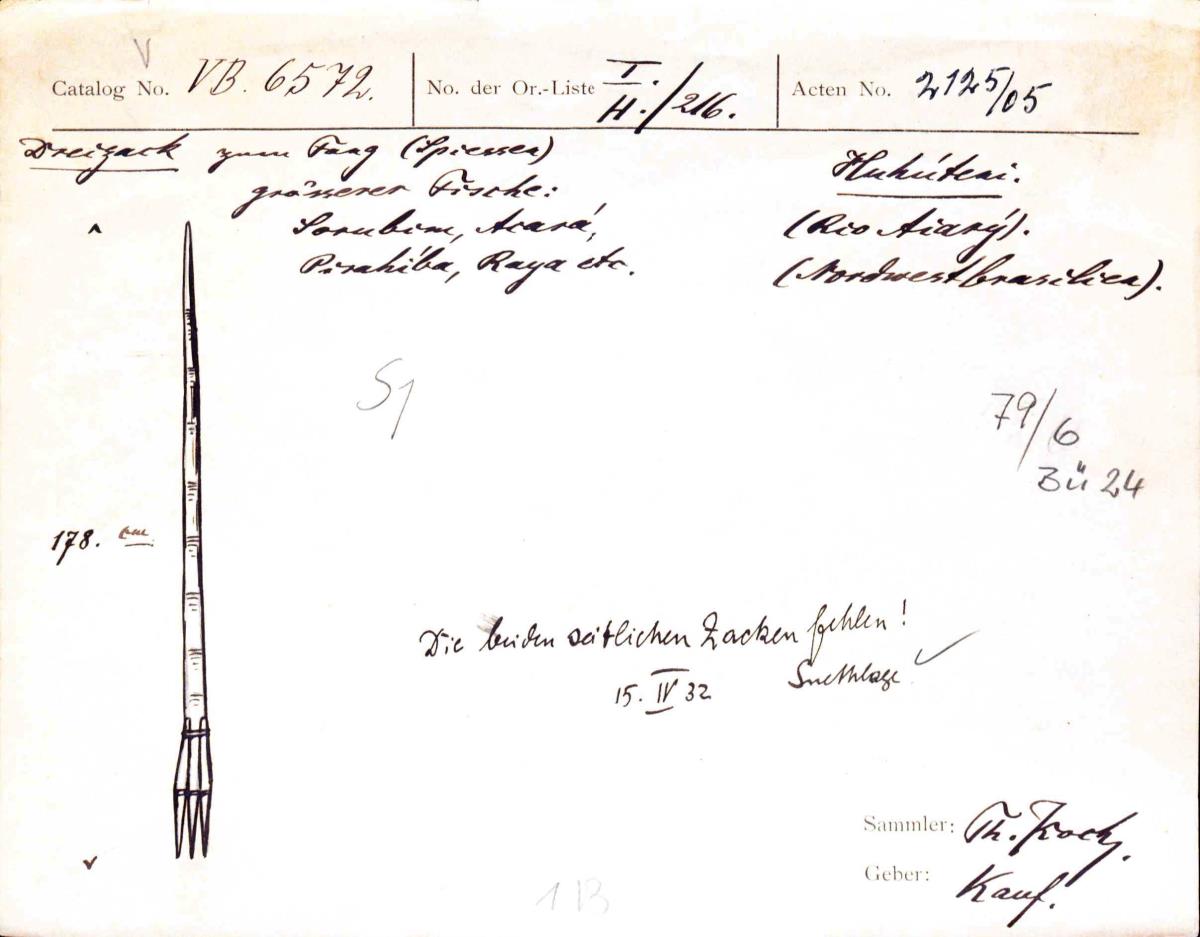 V
Catalog No. VB. 6572.
No. der Or.-Liste I. H./216.
Acten No. 2125/05
Dreizack zum Fang (Spiessen)
grösserer Fische:
Sorubim, Acará,
Pirahíba, Raya etc.
Huhúteni.
(Rio Aiarý).
(Nordwestbrasilien).
S1
79/6
Bü 24
178. cm
Die beiden seitlichen Zacken fehlen!
15. IV 32 Snethlage
Sammler: Th. Koch.
Geber: Kauf.
1 B